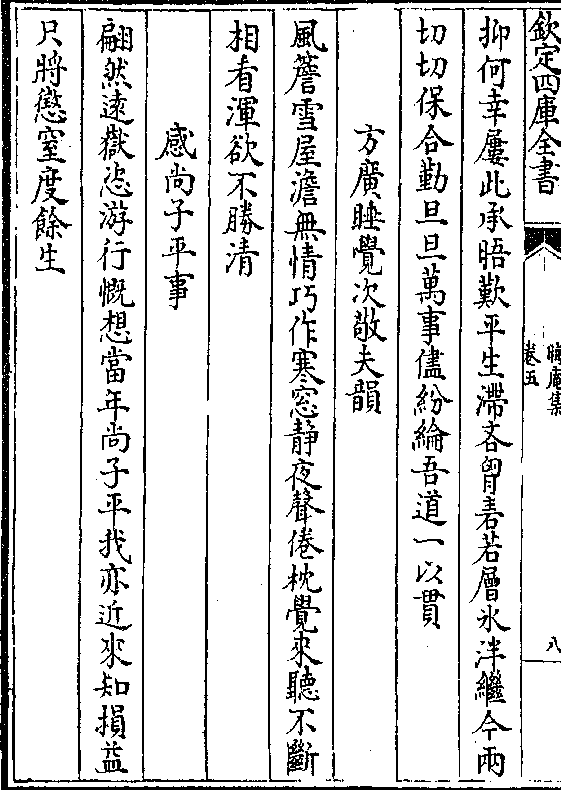 欽定四庫全書
晦庵集
卷五
八
抑何幸屢此承晤歎平生滯吝胷砉若層氷泮繼今兩
切切保合勤旦旦萬事儘紛綸吾道一以貫
方廣睡覺次敬夫韻
風簷雪屋澹無情巧作寒窓靜夜聲倦枕覺來聽不斷
相看渾欲不勝清
感尚子平事
翩然遠嶽恣游行慨想當年尚子平我亦近來知損益
只將懲窒度餘生